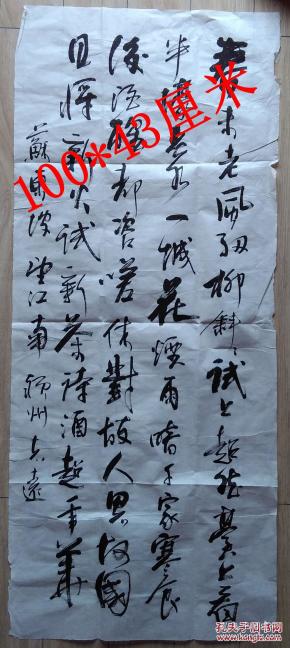 春未老风细柳斜斜试上超然台上看
半壕春水一城花烟雨暗千家寒食
后酒醒却咨嗟休对故人思故国
且将新火试新茶诗酒趁年华
苏东坡望江南 颍州 志远
100*43厘米
孔夫子旧书网